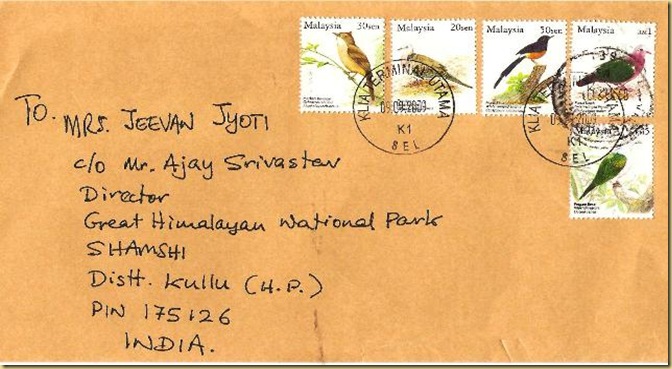 Malaysia 30sen
Malaysia 20sen
Malaysia 50sen
Malaysia
KLIA TERMINAL UTAMA
K1
SEL
KLIA TERMINAL UTAMA
K1
SEL
Malaysia
TO.
MRS. JEEVAN JYOTI
c/o Mr. Ajay Srivastav
Director
Great Himalayan National Park
SHAMSHI
Distt. Kullu (H.P.)
PIN 175126
INDIA.